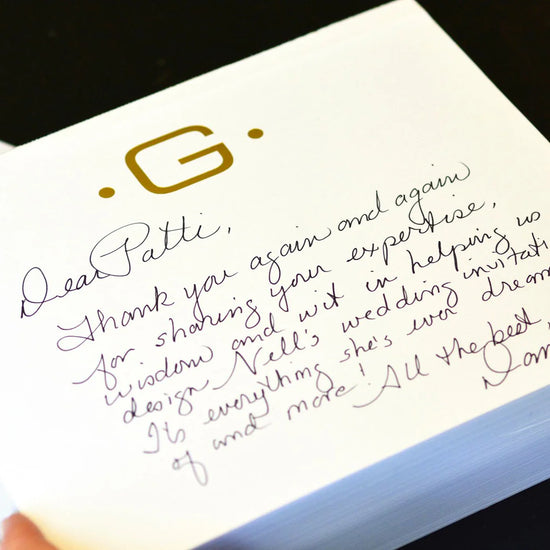 • G •
Dear Patti,
Thank you again and again
for sharing your expertise,
wisdom and wit in helping us
design Nell's wedding invitati
It's everything she's ever dream
of and more! All the best,
Dan